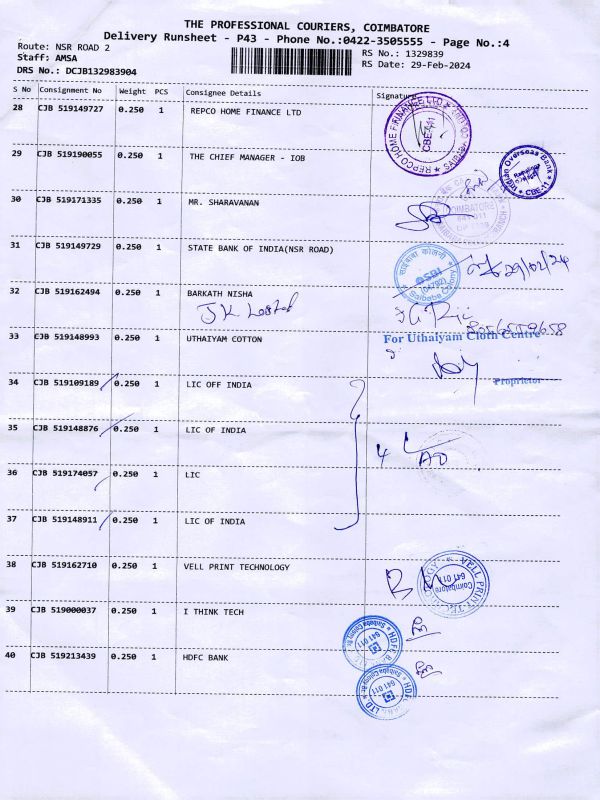 THE PROFESSIONAL COURIERS, COIMBATORE
Delivery Runsheet - P43 - Phone No.:0422-3505555 - Page No.:4
Route: NSR ROAD 2
RS No.: 1329839
Staff: AMSA
RS Date: 29-Feb-2024
DRS No.: DCJB132983904
S No Consignment No Weight PCS Consignee Details Signature
28 CJB 519149727 0.250 1 REPCO HOME FINANCE LTD
REPCO HOME FINANCE LTD
CBE-11
29 CJB 519190055 0.250 1 THE CHIEF MANAGER - IOB
Indian Overseas Bank
CBE-11
30 CJB 519171335 0.250 1 MR. SHARAVANAN
COIMBATORE
31 CJB 519149729 0.250 1 STATE BANK OF INDIA(NSR ROAD)
साईबाबा कोलनी
SBI
Saibaba Colony
29/02/24
32 CJB 519162494 0.250 1 BARKATH NISHA
JK
33 CJB 519148993 0.250 1 UTHAIYAM COTTON
For Uthaiyam Cloth Centre
Proprietor
34 CJB 519109189 0.250 1 LIC OFF INDIA
35 CJB 519148876 0.250 1 LIC OF INDIA
4
36 CJB 519174057 0.250 1 LIC
37 CJB 519148911 0.250 1 LIC OF INDIA
38 CJB 519162710 0.250 1 VELL PRINT TECHNOLOGY
VELL PRINT TECHNOLOGY
Coimbatore
641 011
39 CJB 519000037 0.250 1 I THINK TECH
HDFC BANK LTD
Saibaba Colony Br.
641 011
40 CJB 519213439 0.250 1 HDFC BANK
HDFC BANK LTD
Saibaba Colony Br.
641 011